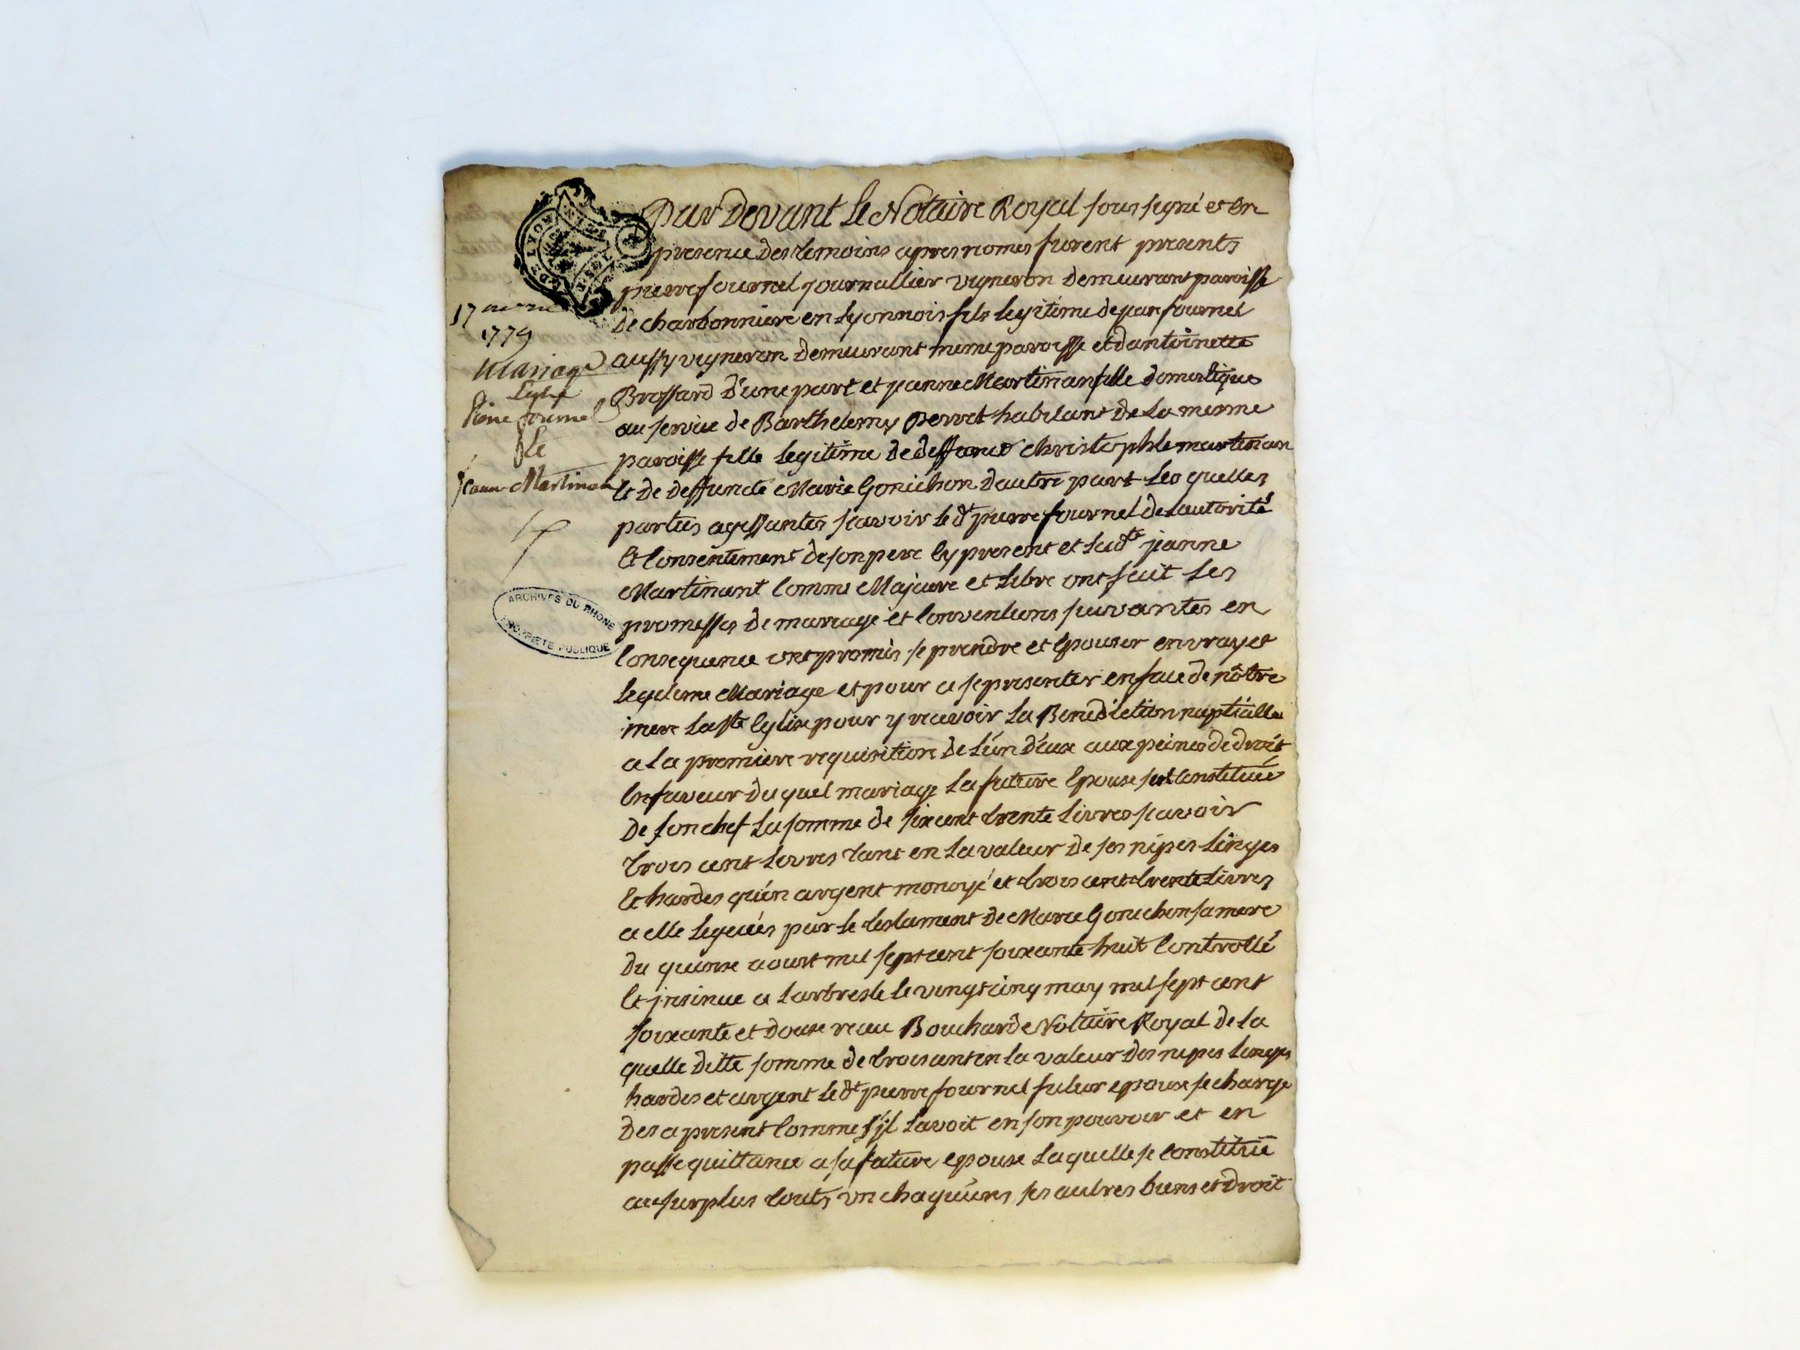 Par Devant Le Notaire Royal sous signé et en
presence des temoins apres nomes furent presents
pierre fournel journallier vigneron demeurant paroisse
de charbonniere en Lyonnois fils legitime de jean fournel
aussy vigneron demeurant meme paroisse et d'antoinette
Brossard d'une part et jeanne Martinan fille domestique
au service de Barthelemy Perret habitant de La meme
paroisse fille Legitime de deffunct christophle martinan
Et de deffuncte Marie Gonichon d'autre part Les quelles
parties agissantes scavoir le dt pierre fournel de L'autorité
Et Consentement de son pere Cy present et La dte jeanne
Martinant Comme Majeure et Libre ont fait Les
promesses de mariage et Conventions suivantes en
Consequence ont promis se prendre et Epouser en vray et
Legitime Mariage et pour ce se presenter en face de nôtre
mere La ste Eglise pour y recevoir La Benediction nuptialle
a La premiere requisition de L'un d'eux aux peines de droit
En faveur du quel mariage La future Epouse s'est Constituée
De son chef La somme de six cent trente Livres scavoir
trois cent Livres tant en La valeur de ses nipes Linges
Et hardes qu'en argent monoyé et trois cent trente Livres
a elle Leguées par Le testament de Marie Gonichon sa mere
du quinse aoust mil sept cent soixante huit Controllé
Et insinue a Larbresle Le vingt cinq may mil sept cent
soixante et douse recu Bouchard Notaire Royal de La
quelle ditte somme de trois cent en La valeur des nipes Linges
hardes et argent Le dt pierre fournel futur epoux se charge
des a present Comme s'il L'avoit en son pouvoir et en
passe quittance a sa future epouse Laquelle se Constitüe
au surplus touts un chaqu'uns ses autres biens et Droit
DE LYON
17
1779
Mariage
Entre
Pierre fournel
Et
jeanne Martinan
ARCHIVES DU RHONE
PROPRIETE PUBLIQUE